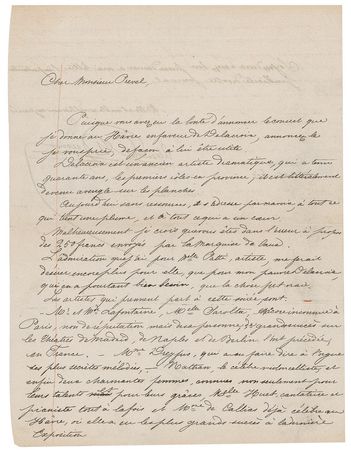 Cher Monsieur Prevel,
Puisque vous avez eu la bonté d'annoncer le concert que
je donne au Hâvre en faveur de Delacroix, annoncez le
je vous prie, de façon à lui être utile
Delacroix est un ancien artiste dramatique, qui a tenu
quarante ans, les premiers rôles en province; il est littéralement
devenu aveugle sur les planches.
Aujourd'hui sans ressources, il s'adresse par ma voix, à tout ce
qui tient une plume, et à tout ce qui a un cœur.
Malheureusement je crois que vous êtes dans l'erreur à propos
des 250 francs envoyés par la Marquise de Caux.
L'admiration que j'ai pour Mlle Patti, artiste, me ferait
désirer encore plus pour elle, que pour mon pauvre Delacroix
qui en a pourtant bien besoin, que la chose fut vraie.
Les artistes qui prennent part à cette soirée sont.
— Mr et Me Lafontaine, Melle Parolta, encore inconnue à
Paris, non de réputation mais de sa personne, les grands succès sur
les théâtres de Madrid, de Naples et de Berlin l'ont précédée
en France. — Mme Dreyfus, qui a su faire dire à l'orgue
ses plus secrètes mélodies, — Nathan, le célèbre violoncelliste, et
enfin deux charmantes femmes, connues non seulement pour
leurs talents mais pour leurs grâces Melle Huet, cantatrice et
pianiste tout à la fois et Mme de Callias déjà célèbre au
Hâvre, où elle a eu les plus grands succès à la dernière
Exposition